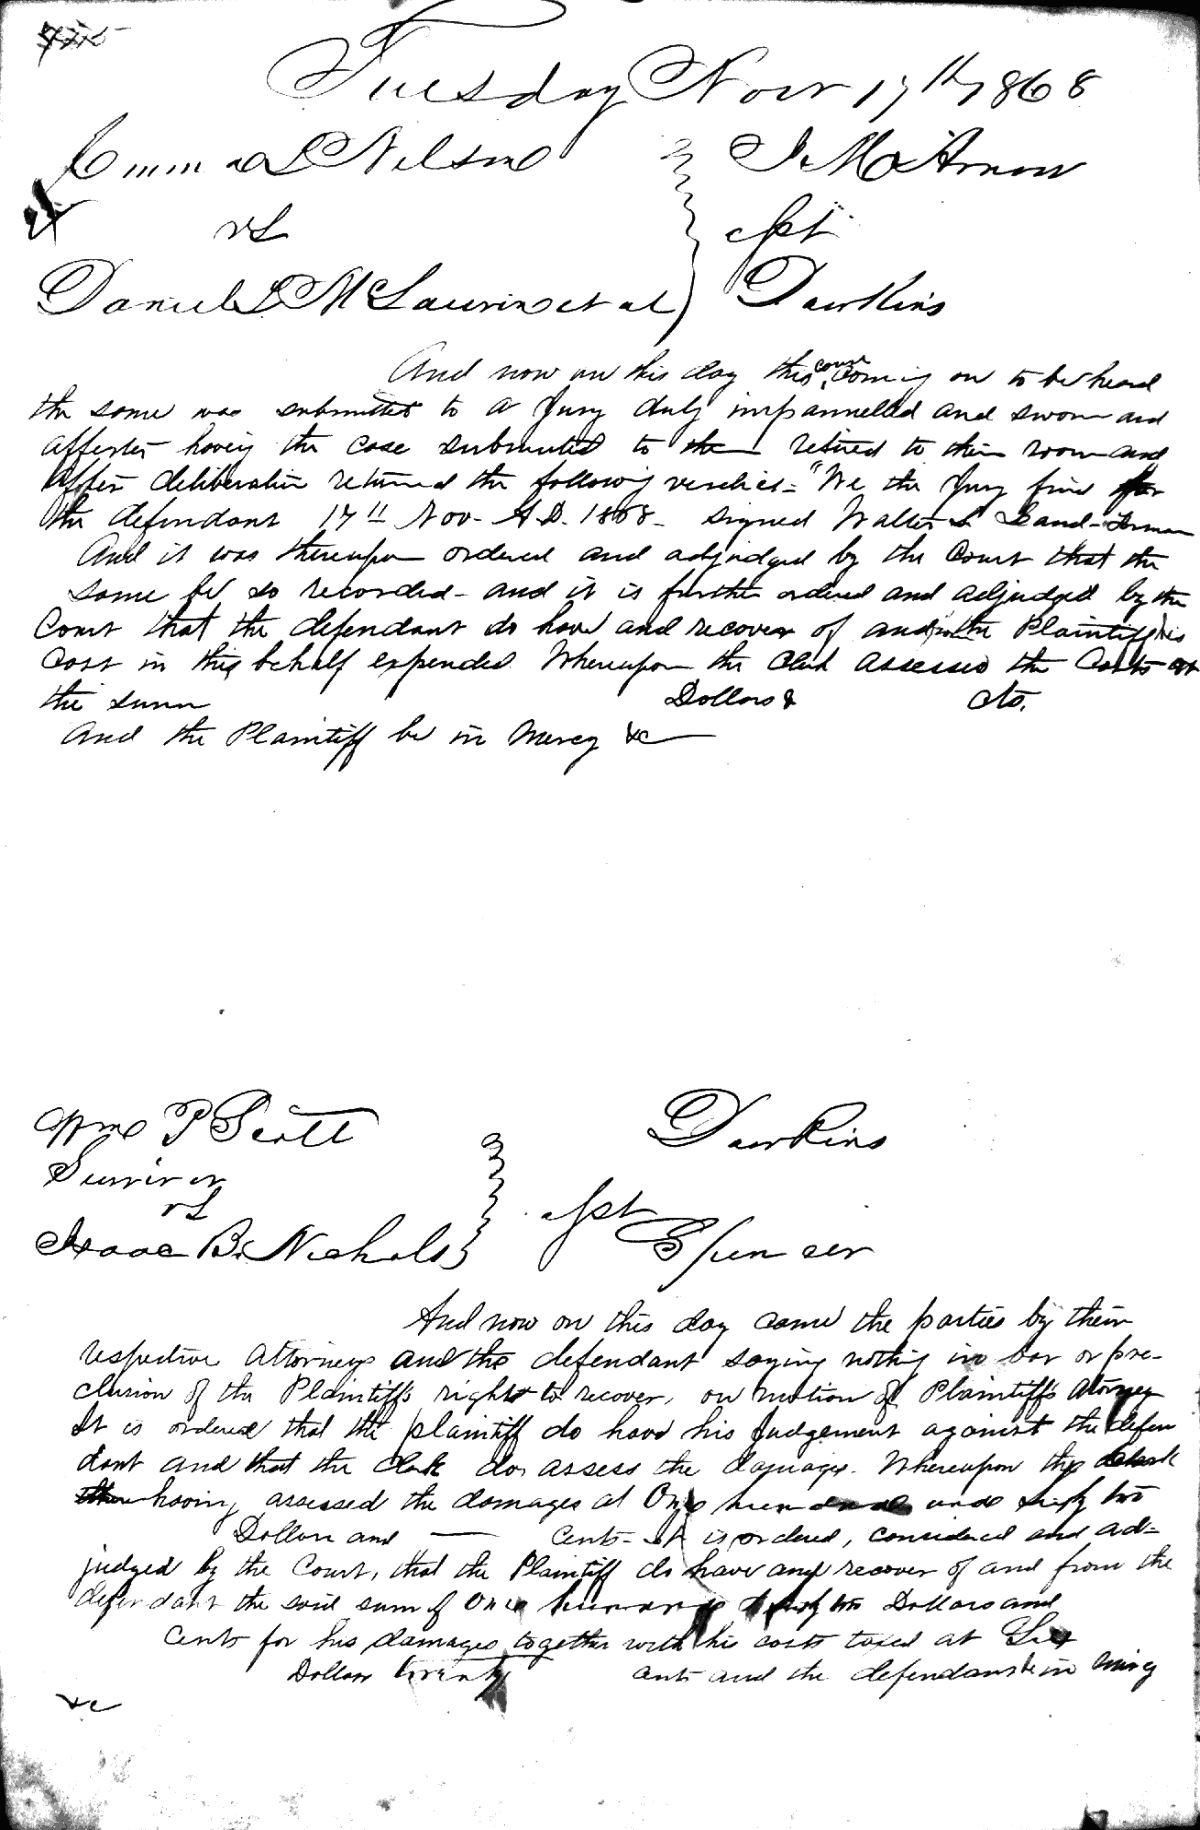 Tuesday Nov 17th 1868
Emma L Nelson
J M Arnow
vs
Daniel L McLaurin et al
Dawkins
And now on this day this court coming on to be heard
the same was submitted to a Jury duly impannelled and sworn and
after having the case submitted to the retired to their room and
after deliberation returned the following verdict - "We the Jury find for
the defendant 17th Nov. A.D. 1868. signed Walter
And it was thereupon ordered and adjudged by the Court that the
same be so recorded - and it is further ordered and adjudged by the
Court that the defendant do have and recover of and from the Plaintiff his
Cost in this behalf expended. Whereupon the Clerk assessed the Costs at
the sum Dollars & cts.
And the Plaintiff be in mercy &c
Wm P Scott
Dawkins
Survivor
vs
Isaac B. Nichols
Spencer
And now on this day came the parties by their
respective Attorneys and the defendant saying nothing in bar or pre-
clusion of the Plaintiffs right to recover, on motion of Plaintiffs Attorney
It is ordered that the plaintiff do have his Judgement against the defen
dant and that the Clerk do assess the damages. Whereupon the clerk
having assessed the damages at One hundred and two
Dollars and — Cents - It is ordered, considered and ad-
judged by the Court, that the Plaintiff do have and recover of and from the
defendant the said sum of One hundred two Dollars and
Cents for his damages together with his costs taxed at Six
Dollars twenty cents and the defendant be in mercy
&c